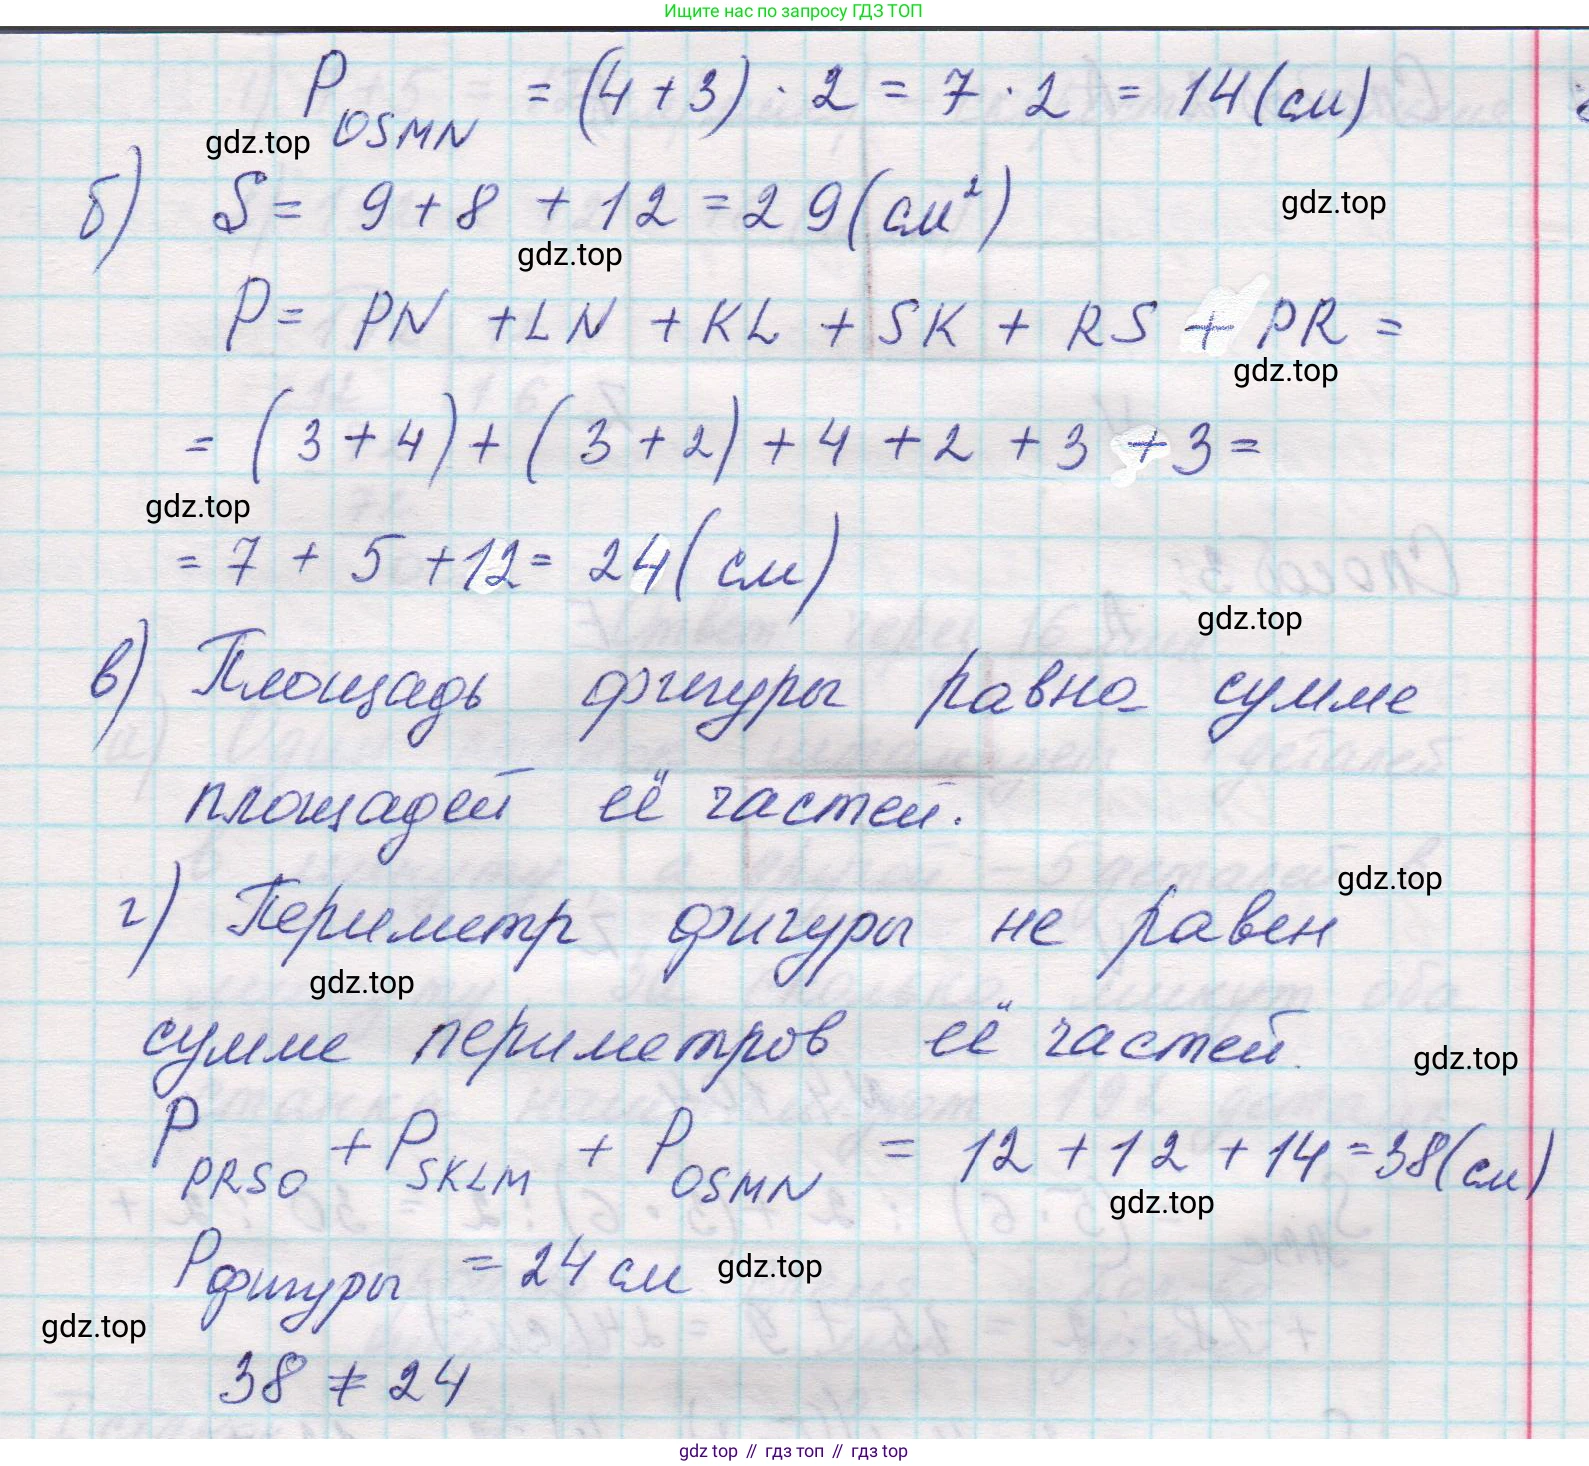 Ищите нас по запросу ГДЗ ТОП
P OSMN = (4 + 3) · 2 = 7 · 2 = 14 (см)
gdz.top
б) S = 9 + 8 + 12 = 29 (см²)
gdz.top
gdz.top
P = PN + LN + KL + SK + RS + PR =
gdz.top
= (3 + 4) + (3 + 2) + 4 + 2 + 3 + 3 =
gdz.top
= 7 + 5 + 12 = 24 (см)
gdz.top
в) Площадь фигуры равна сумме
площадей её частей.
gdz.top
г) Периметр фигуры не равен
gdz.top
сумме периметров её частей
gdz.top
P PRSO + P SKLM + P OSMN = 12 + 12 + 14 = 38 (см)
gdz.top
P фигуры = 24 см
gdz.top
gdz.top
38 ≠ 24
gdz top // гдз топ // гдз top